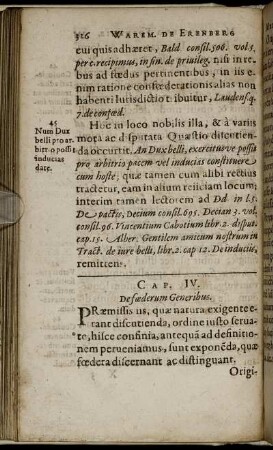 326 WAREM. DE ERENBERG
cui quis adhæret, Bald consil. 506. vol. 5.
per c. recipimus, in fin. de privileg. nisi in re-
bus ad fœdus pertinentibus, in iis e-
nim ratione confœderationis alias non
habenti Iurisdictio tribuitur, Laudens. q.
7. de confœd.
45
Num Dux
belli pro ar-
bitrio possit
inducias
dare.
Hoc in loco nobilis illa, & à variis
mota ac disputata Quæstio discutien-
da occurrit. An Dux belli, exercitusve possit
pro arbitrio pacem vel inducias constituere
cum hoste; quæ tamen cum alibi rectius
tractetur, eam in alium reiiciam locum;
interim tamen lectorem ad Dd in l. 5.
De pactis, Decium consil. 695. Decian 3. vol.
consil. 96. Vincentium Cabotium libr. 2. disput.
cap. 15. Alber. Gentilem amicum nostrum in
Tract. de iure belli, libr. 2. cap 12. De induciis,
remittens.
CAP. IV.
De fœderum Generibus.
PRæmissis iis, quæ natura exigente e-
rant discutienda, ordine iusto serua-
te, hisce confinia, antequā ad definitio-
nem perueniamus, sunt exponēda, quæ
fœdera discernant ac distinguant.
Origi-